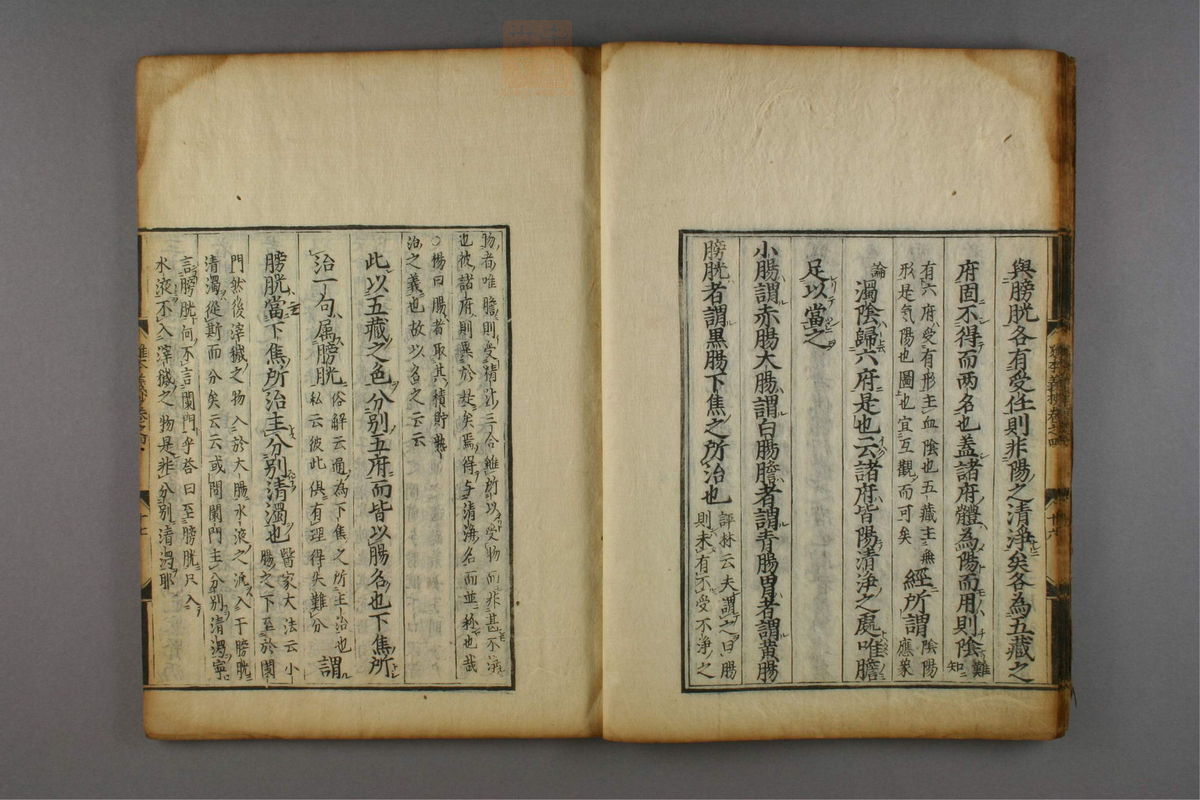 與膀胱各有受任則非陽之清淨矣各為五藏之
府固不得而两名也蓋諸府體為陽而用則陰難
知
有六府受有形主血陰也五藏主無
形是氣陽也圖也宜互觀而可矣
經所謂
陰陽
應象
論
濁陰歸六府是也云諸府皆陽清淨之處唯膽
足以當之
小腸謂赤腸大腸謂白腸膽者謂青腸胃者謂黄腸
膀胱者謂黒腸下焦之所治也
評林云夫謂之曰腸
則未有不受不淨之
物者唯膽則受精汁三合雖所以受物而非甚不淨
也彼諸府則異於是矣焉得与清淨名而並称也哉
○腸曰腸者取其積貯熟
治之義也故以名之云云
此以五藏之色分別五府而皆以腸名也下焦所
治一句属膀胱
俗解云通為下焦之所主治也
私云彼此俱有理得失難分
謂
膀胱當下焦所治主分別清濁也
醫家大法云小
腸之下至於闌
門然後滓穢之物入於大腸水液之流入于膀胱
清濁從斯而分矣云云或問闌門主分別清濁寧
言膀胱何不言闌門乎答曰至膀胱只入
水液不入滓穢之物是非分別清濁耶